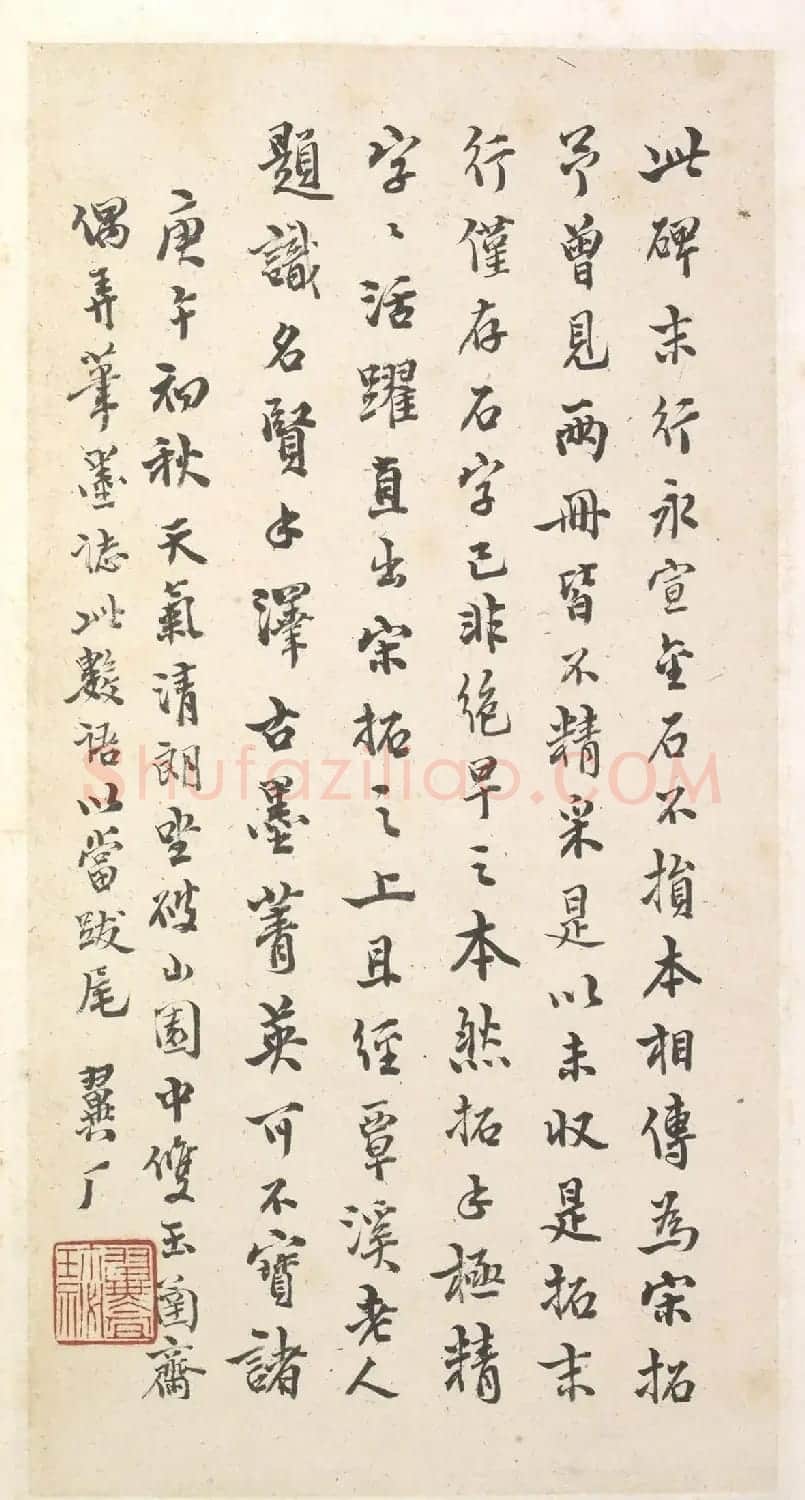 此碑末行永宣金石不損本相傳為宋拓
予曾見兩冊皆不精采是以未收是拓末
行僅存石字已非絕早之本然拓手極精
字〻活躍直出宋拓之上且經覃溪老人
題識名賢手澤古墨菁英可不寶諸
庚午初秋天氣清朗坐破山園中雙玉蘭齋
偶弄筆墨誌此數語以當跋尾 翼厂
Shufaziliao.COM